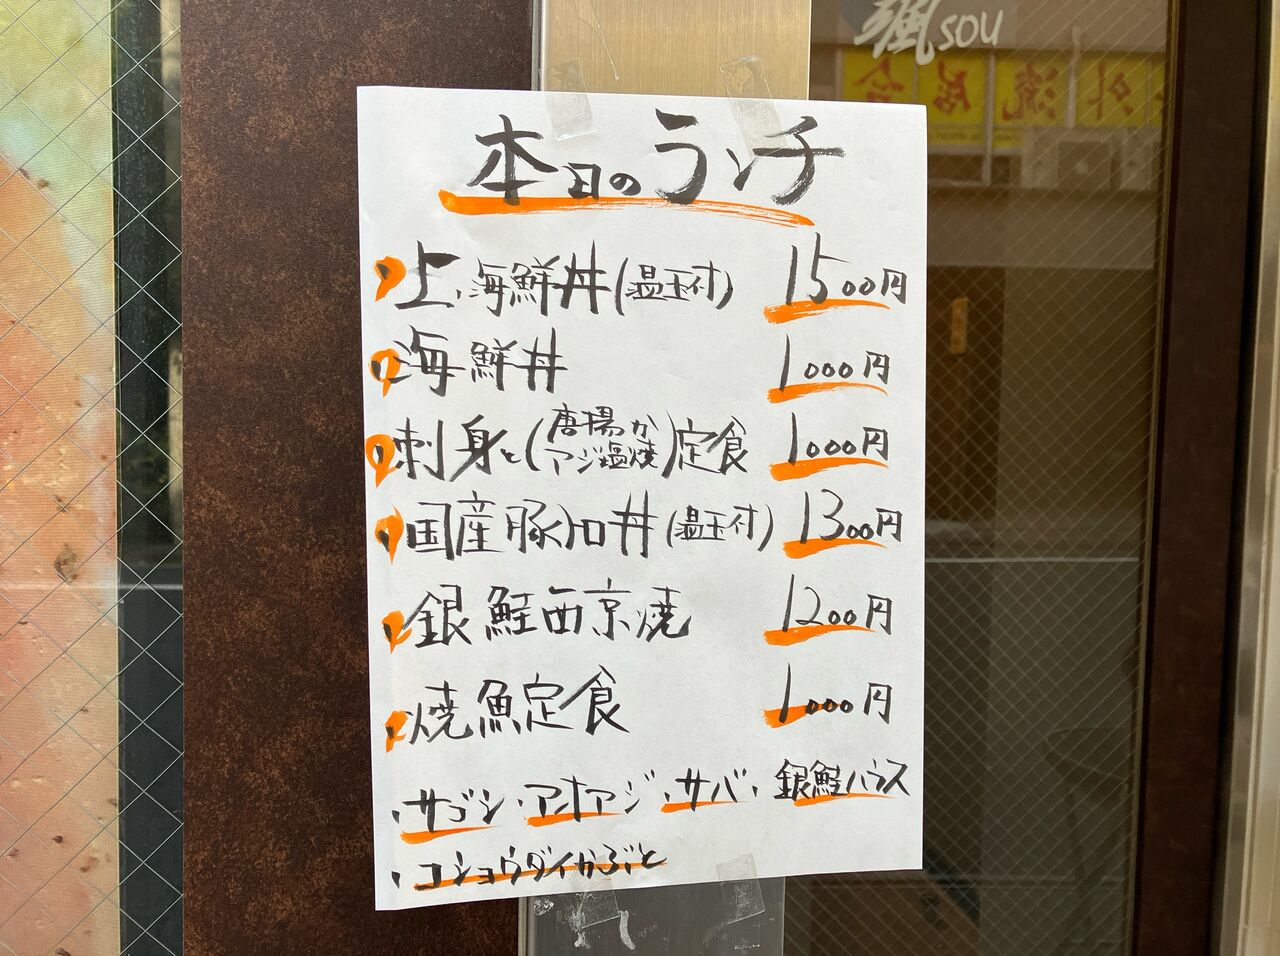 颯sou
本日のランチ
・上海鮮丼(温玉付) 1500円
・海鮮丼 1000円
・刺身と(唐揚か アジ塩焼)定食 1000円
・国産豚トロ丼(温玉付) 1300円
・銀鮭西京焼 1200円
・焼魚定食 1000円
・サゴシ・アオアジ・サバ・銀鮭ハラス
・コショウダイかぶと